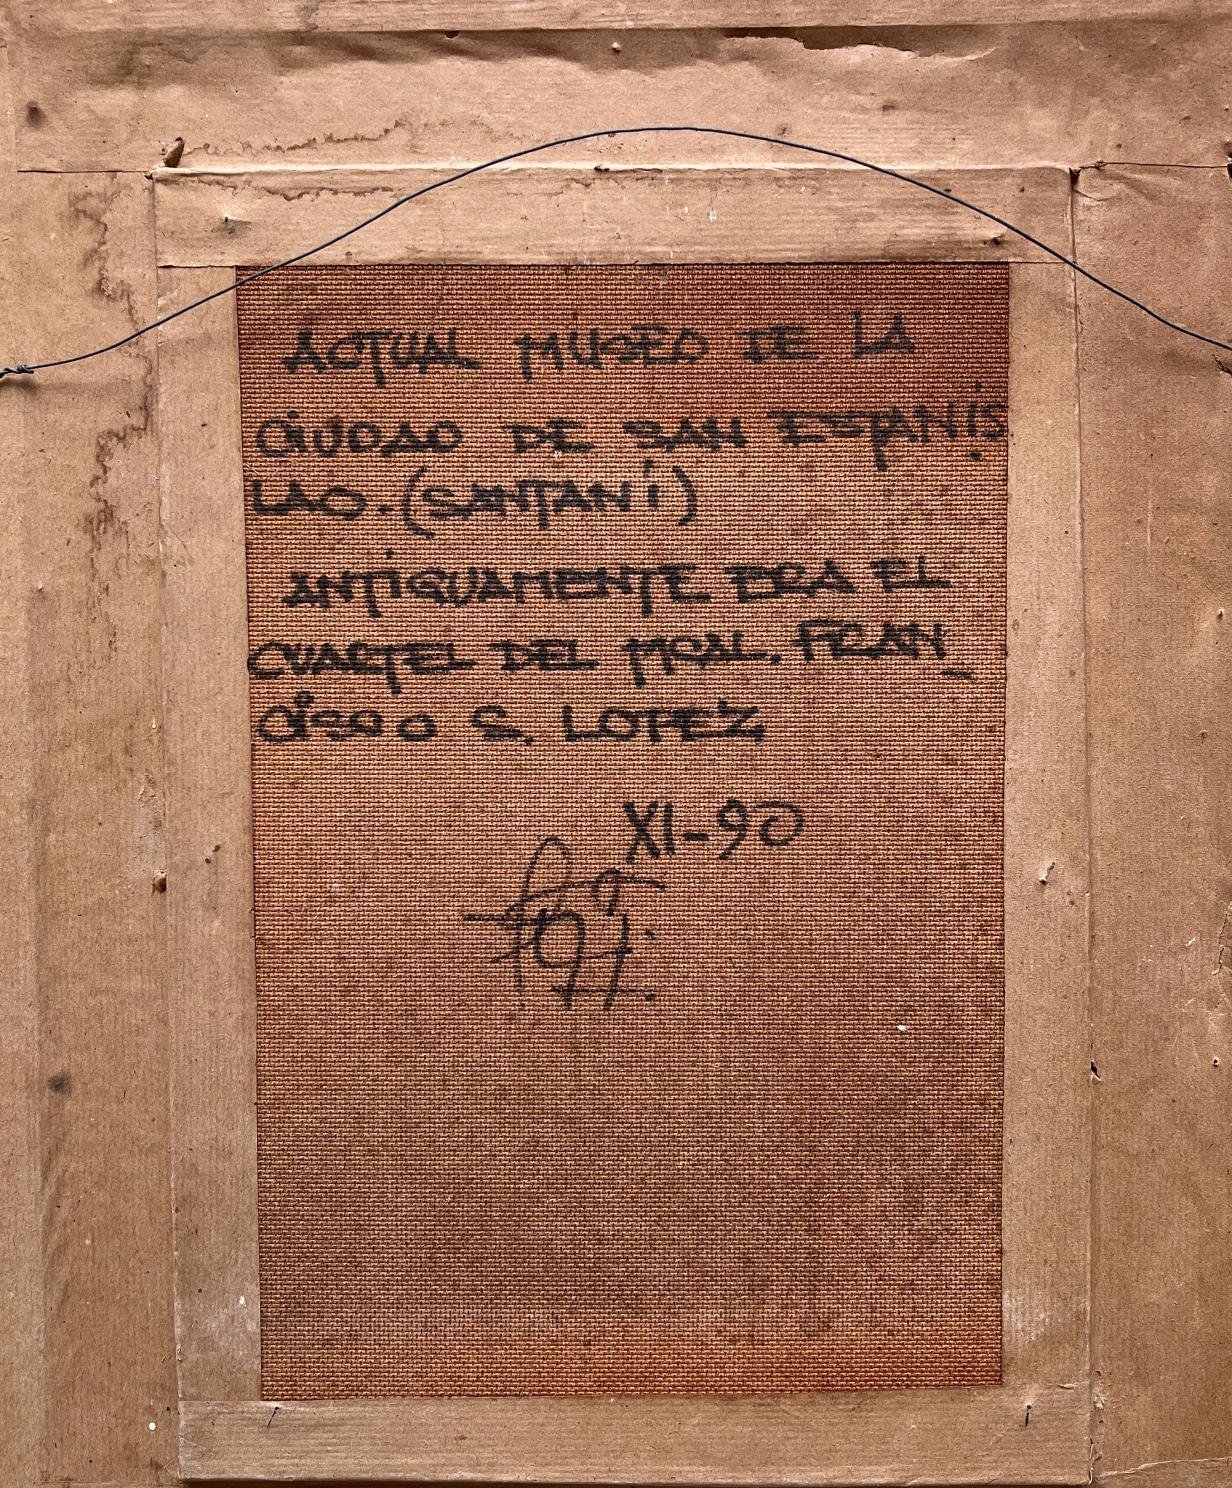 ACTUAL MUSEO DE LA
CIUDAD DE SAN ESTANIS
LAO. (SANTANÍ)
ANTIGUAMENTE ERA EL
CUARTEL DEL MRAL. FRAN_
CISCO S. LOPEZ
XI-90